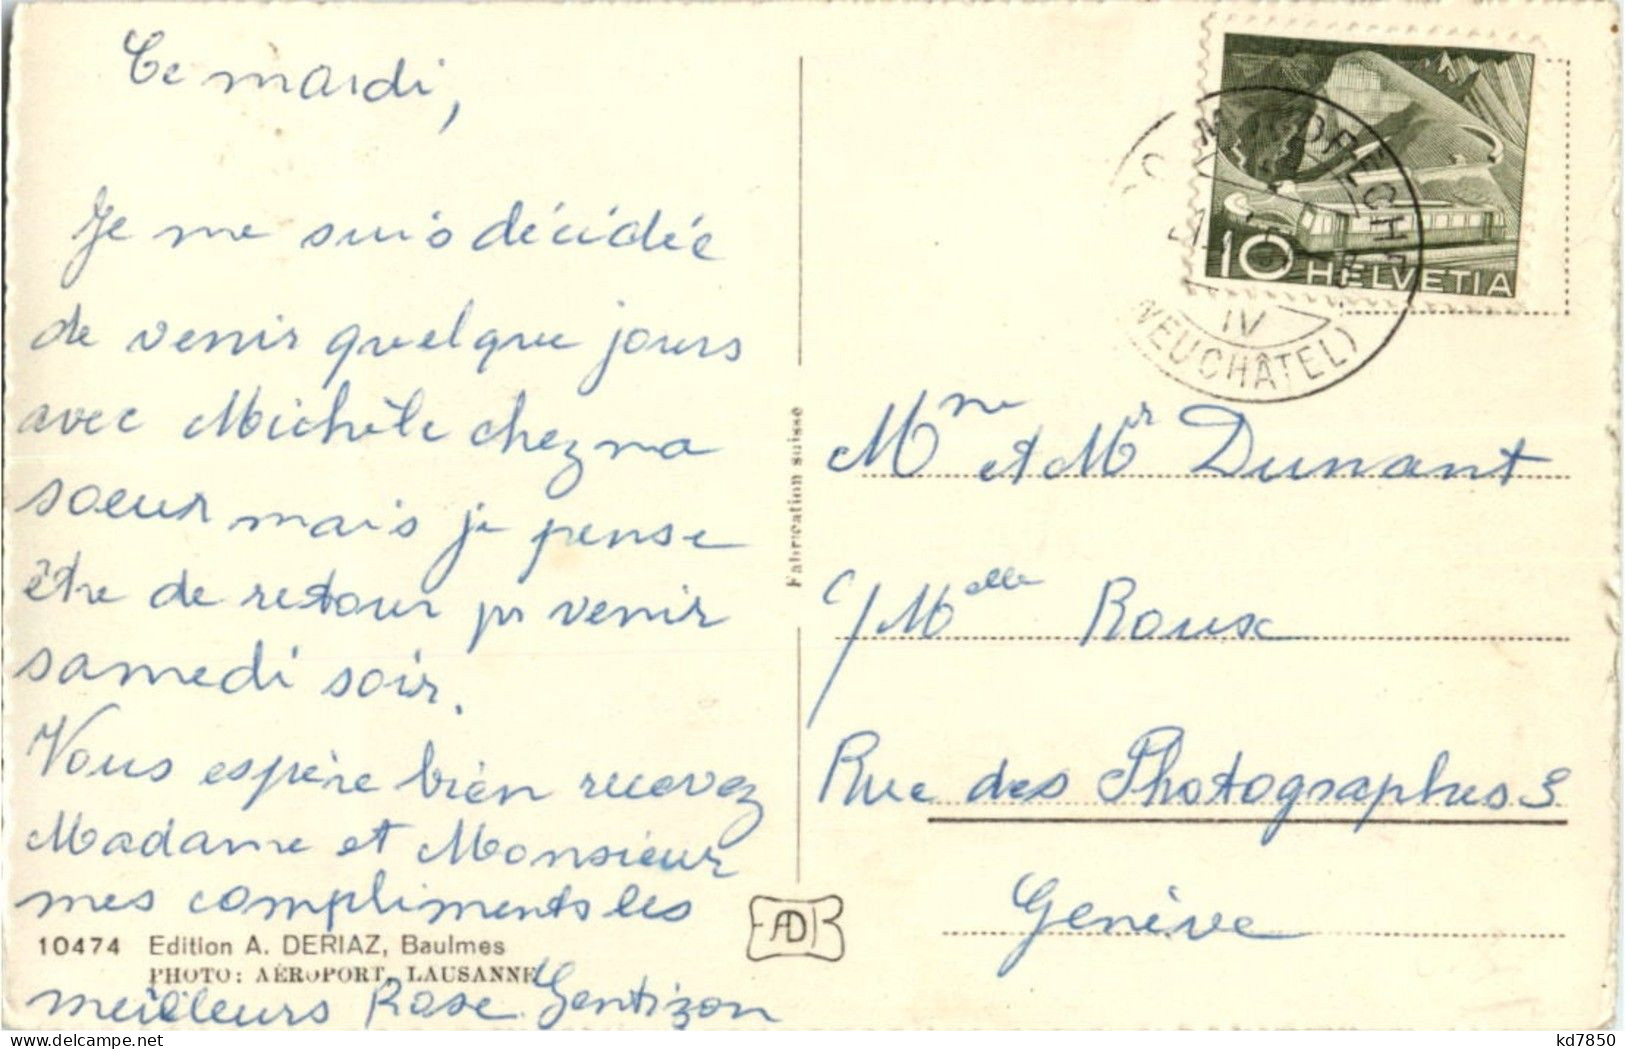 Ce mardi,
Je me suis décidée
de venir quelque jours
avec Michèle chez ma
soeur mais je pense
être de retour pr venir
samedi soir.
Vous espère bien recevez
Madame et Monsieur
mes compliments les
meilleurs Rose Gentizon
10474 Edition A. DERIAZ, Baulmes
PHOTO: AÉROPORT, LAUSANNE
Fabrication suisse
ADB
10 HELVETIA
IV
(NEUCHÂTEL)
Mme et Mr Dunant
c/Melle Roux
Rue des Photographes 3
Genève
kd7850